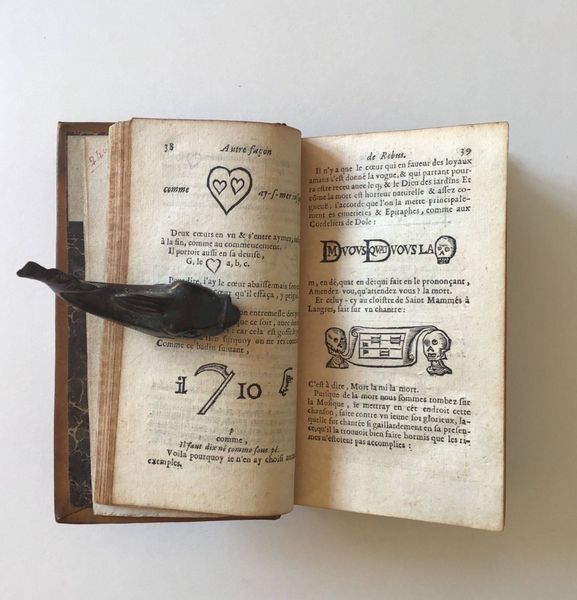 38 Autre façon
comme ay-s-mer
Deux cœurs en vn & s'entre aymer,
à la fin, comme au commencement.
Il portoit aussi en sa deuise,
G, le a, b, c.
Pour dire, i'ay le cœur abaissé
cœur qu'il effaça, y
on entremesle des
que ce soit, auec
car cela est
surquoy on ne
Comme ce badin suiuant,
i 10
p
comme,
Il faut dix né comme sous pé.
Voila pourquoy ie n'en ay choisi
exemples.
de Rebus. 39
Il n'y a que le cœur qui en faueur des loyaux
amans s'est donné la vogue, & qui partant pour-
ra estre receu auec le q, & le Dieu des iardins Et
côme la mort est horreur naturelle & assez co-
gneuë; i'accorde que l'on la mette principale-
ment és cimetieres & Epitaphes, comme aux
Cordeliers de Dole:
DM VOVS DQVAT VOVS LA
m, en dé, quat en dé; qui fait en le prononçant,
Amendez vou, qu'attendez vous? la mort.
Et celuy-cy au cloistre de Saint Mammés à
Langres, fait sur vn chantre:
C'est à dire, Mort la mi la mort.
Puisque de la mort nous sommes tombez sur
la Musique, ie mettray en cét endroit cette
chanson, faite contre vn ieune sot glorieux, la-
quelle fut chantée si gaillardement en sa presen-
ce, qu'il la trouuoit bien faire hormis que les ri-
mes n'estoient pas accomplies: